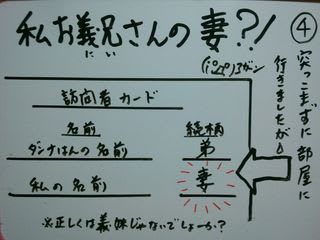 ④
私お義兄さんの妻?!
にい
(i°Д°)ガーン
突っこまずに部屋に
行きましたが
訪問者カード
名前 続柄
ダンナはんの名前 弟
私の名前 妻
※正しくは義妹じゃないでしょーか?